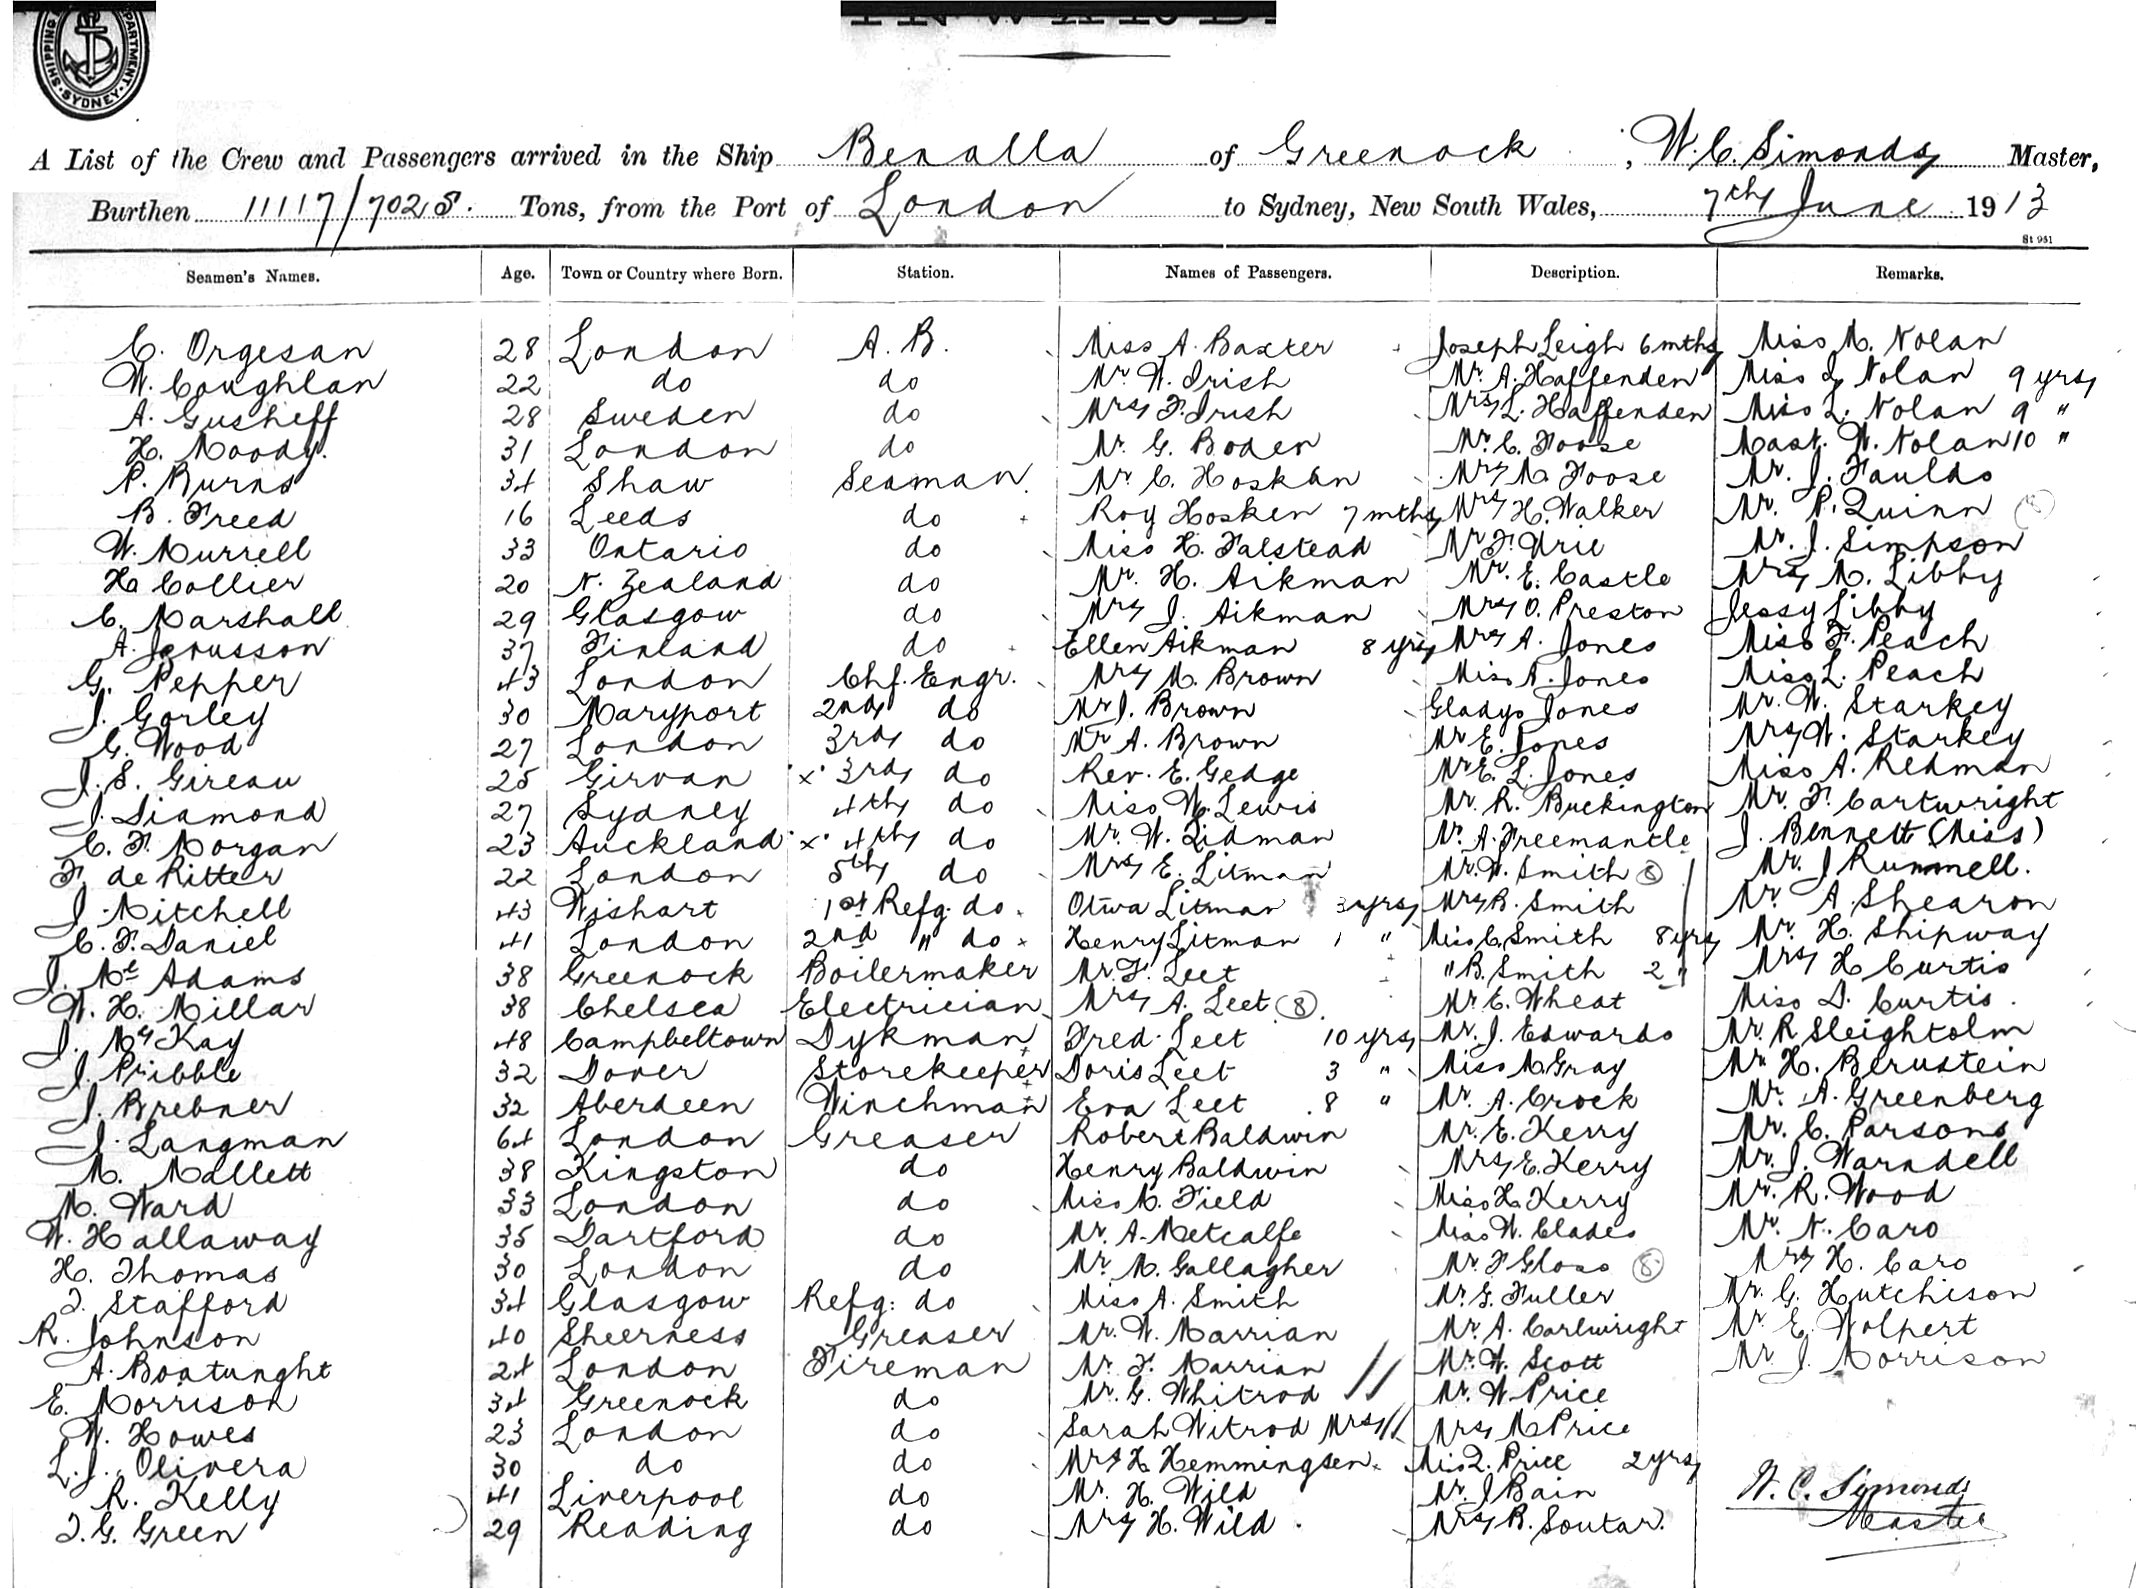 SHIPPING DEPARTMENT. SYDNEY
INWARDS
A List of the Crew and Passengers arrived in the Ship Benalla of Greenock, W. C. Simonds Master,
Burthen 11117/7025. Tons, from the Port of London to Sydney, New South Wales, 7th June 1913
St 951
Seamen's Names. Age. Town or Country where Born. Station. Names of Passengers. Description. Remarks.
C. Orgesan 28 London A. B. Miss A. Baxter Joseph Leigh 6 mths Miss M. Nolan
W. Coughlan 22 do do Mr. W. Irish Mr. A. Haffenden Miss J. Nolan 9 yrs
A. Gusheff 28 Sweden do Mrs F. Irish Mrs L. Haffenden Miss L. Nolan 9 "
H. Moody. 31 London do Mr. G. Boden Mr. C. Foose Mast. W. Nolan 10 "
P. Burns 34 Shaw Seaman Mr. C. Hosken Mrs M. Foose Mr. J. Faulds
B. Freed 16 Leeds do Roy Hosken 7 mths Mrs H. Walker Mr. P. Quinn
W. Murrell 33 Ontario do Miss H. Falstead Mr F. Urie Mr. J. Simpson
H. Collier 20 N. Zealand do Mr. H. Aikman Mr. E. Castle Mrs M. Libby
C. Marshall 29 Glasgow do Mrs J. Aikman Mrs O. Preston Jessy Libby
A. 37 Finland do Ellen Aikman 8 yrs Mrs A. Jones Miss F. Peach
G. Pepper 43 London Chf. Engr. Mrs M. Brown Miss A. Jones Miss L. Peach
J. Gorley 30 Maryport 2nd do Mr J. Brown Gladys Jones Mr. W. Starkey
G. Wood 27 London 3rd do Mr A. Brown Mr E. Jones Mrs W. Starkey
J. S. Gireau 25 Girvan x 3rd do Rev. E. Gedge Mr E. L. Jones Miss A. Redman
J. Diamond 27 Sydney 4th do Miss W. Lewis Mr. R. Buckington Mr. F. Cartwright
C. F. Morgan 23 Auckland x 4th do Mr. W. Lidman Mr. A. Freemantle J. Bennett (Miss)
F. de Ritter 22 London 5th do Mrs E. Litman Mr. W. Smith (8) Mr. J Rummell.
J. Mitchell 43 Wishart 1st Refg. do Otwa Litman 3 yrs Mrs B. Smith Mr. A. Shearon
C. F. Daniel 41 London 2nd " do Henry Litman 1 " Miss C. Smith 8 yrs Mr. H. Shipway
J. Mc Adams 38 Greenock Boilermaker Mr. F. Leet " B. Smith 2 " Mrs H Curtis
W. H. Millar 38 Chelsea Electrician Mrs A. Leet (8) Mr E. Wheat Miss D. Curtis.
J. Mc Kay 48 Campbeltown Dykman Fred. Leet 10 yrs Mr. J. Edwards Mr. R Sleightolm
J. Pribble 32 Dover Storekeeper Doris Leet 3 " Miss M Gray Mr. H. Bernstein
J. Brebner 32 Aberdeen Winchman Eva Leet 8 " Mr. A. Crock Mr. A. Greenberg
J. Langman 64 London Greaser Robert Baldwin Mr. E. Kerry Mr. C. Parsons
M. Mallett 38 Kingston do Henry Baldwin Mrs E. Kerry Mr. J. Warndell
M. Ward 33 London do Miss M. Field Miss H. Kerry Mr. R. Wood
W. Hallaway 35 Dartford do Mr. A. Metcalfe Miss W. Clades Mr. N. Caro
H. Thomas 30 London do Mr. M. Gallagher Mr. F Gloso (8) Mrs H. Caro
T. Stafford 34 Glasgow Refg: do Miss A. Smith Mr. G. Fuller Mr. G. Hutchison
R. Johnson 40 Sheerness Greaser Mr. W. Marrian Mr. A. Carlwright Mr E. Wolpert
A. Boatunght 24 London Fireman Mr. F. Marrian Mr. W. Scott Mr J. Morrison
E. Morrison 34 Greenock do Mr. G. Whitrod Mr. W. Price
W. Howes 23 London do Sarah Witrod Mrs Mrs M Price
L. J. Olivera 30 do do Mrs H. Hemmingsen Miss D. Price 2 yrs
R. Kelly 41 Liverpool do Mr. H. Wild Mr. J Bain W. C. Simonds
T. G. Green 29 Reading do Mrs H. Wild. Mrs B. Soutar. Master